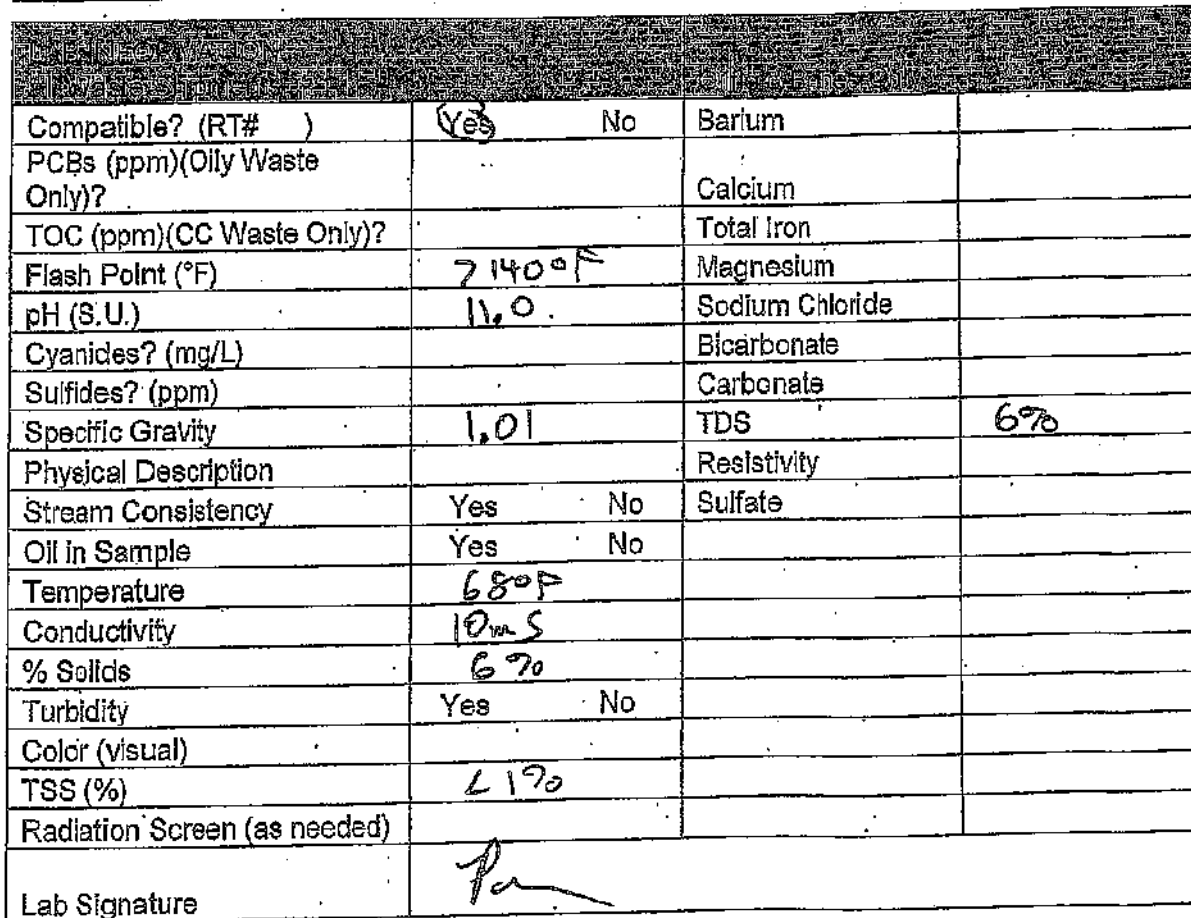 Compatible? (RT# ) Yes No Barium
PCBs (ppm)(Oily Waste
Only)? Calcium
TOC (ppm)(CC Waste Only)? Total Iron
Flash Point (°F) >140°F Magnesium
pH (S.U.) 11.0 Sodium Chloride
Cyanides? (mg/L) Bicarbonate
Sulfides? (ppm) Carbonate
Specific Gravity 1.01 TDS 6%
Physical Description Resistivity
Stream Consistency Yes No Sulfate
Oil in Sample Yes No
Temperature 68°F
Conductivity 10mS
% Solids 6%
Turbidity Yes No
Color (visual)
TSS (%) <1%
Radiation Screen (as needed)
Lab Signature